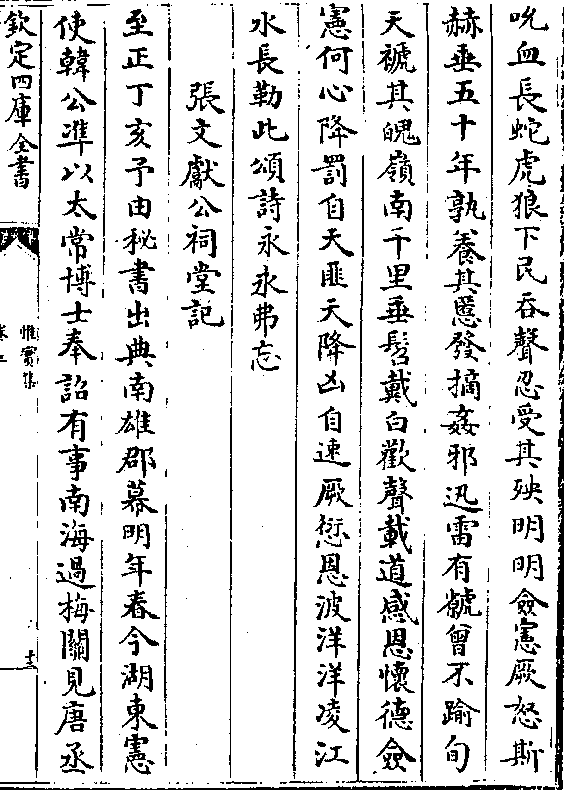 吮血長蛇虎狼下民吞聲忍受其殃明明僉憲厥怒斯
赫垂五十年孰養其慝發摘姦邪迅雷有虩曾不踰旬
天禠其魄嶺南千里垂髫戴白歡聲載道感恩懷德僉
憲何心降罰自天匪天降凶自速厥愆恩波洋洋凌江
水長勒此頌詩永永弗忘
張文獻公祠堂記
至正丁亥予由秘書出典南雄郡幕明年春今湖東憲
使韓公凖以太常博士奉詔有事南海過梅關見唐丞
欽定四庫全書
惟實集
十三